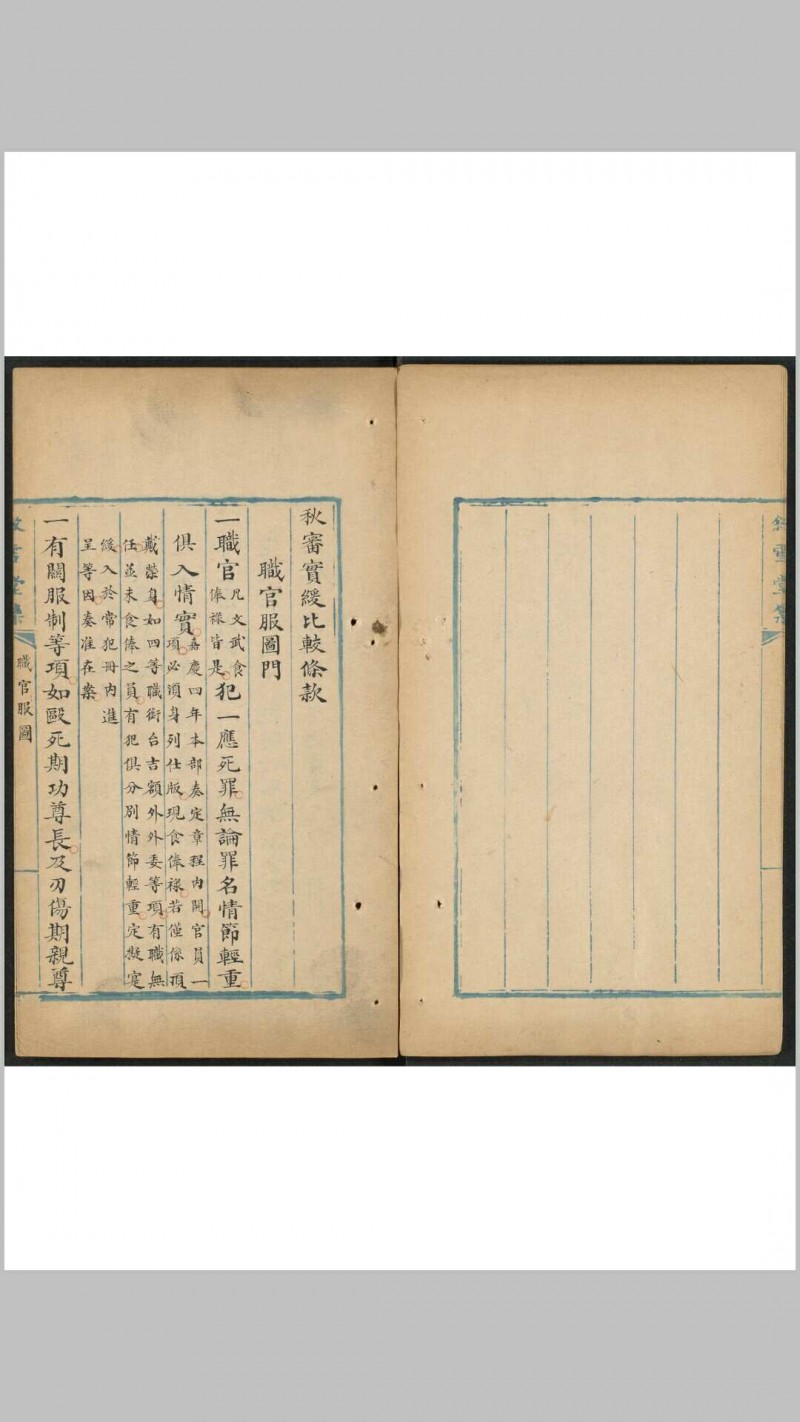 敘雪堂集
秋審實緩比較條款
職官服圖門
一職官凡文武食俸祿皆是犯一應死罪無論罪名情節輕重
俱入情實嘉慶四年本部奏定章程内開官員一
項必須身列仕版現食俸祿若僅係頂
戴榮身如四等職銜台吉額外外委等項有職無
任並未食俸之員有犯俱分別情節輕重定擬寔
緩入於常犯冊内進
呈等因奏准在案
一有關服制等項如毆死期功尊長及刃傷期親尊
敘雪堂集
職官服圖